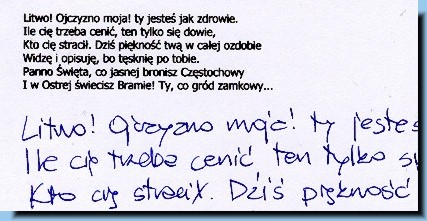 Litwo! Ojczyzno moja! ty jesteś jak zdrowie.
Ile cię trzeba cenić, ten tylko się dowie,
Kto cię stracił. Dziś piękność twą w całej ozdobie
Widzę i opisuję, bo tęsknię po tobie.
Panno Święta, co jasnej bronisz Częstochowy
I w Ostrej świecisz Bramie! Ty, co gród zamkowy...
Litwo! Ojczyzno moja! ty jestes
Ile cię trzeba cenić ten tylko
Kto cię stracił. Dziś piękność